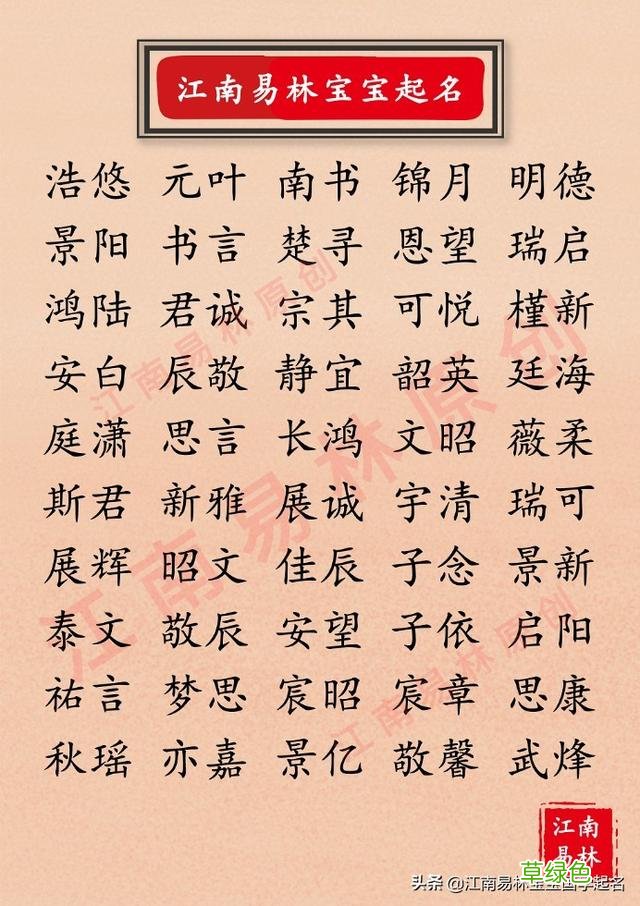 江南易林宝宝起名
浩悠 元叶 南书 锦月 明德
景阳 书言 楚寻 恩望 瑞启
鸿陆 君诚 宗其 可悦 槿新
安白 辰敬 静宜 韶英 廷海
庭潇 思言 长鸿 文昭 薇柔
斯君 新雅 展诚 宇清 瑞可
展辉 昭文 佳辰 子念 景新
泰文 敬辰 安望 子依 启阳
祐言 梦思 宸昭 宸章 思康
秋瑶 亦嘉 景亿 敬馨 武烽
江南易林原创
江南易林原创
江南易林原创
江南
易林
草绿色
头条 @江南易林宝宝国学起名